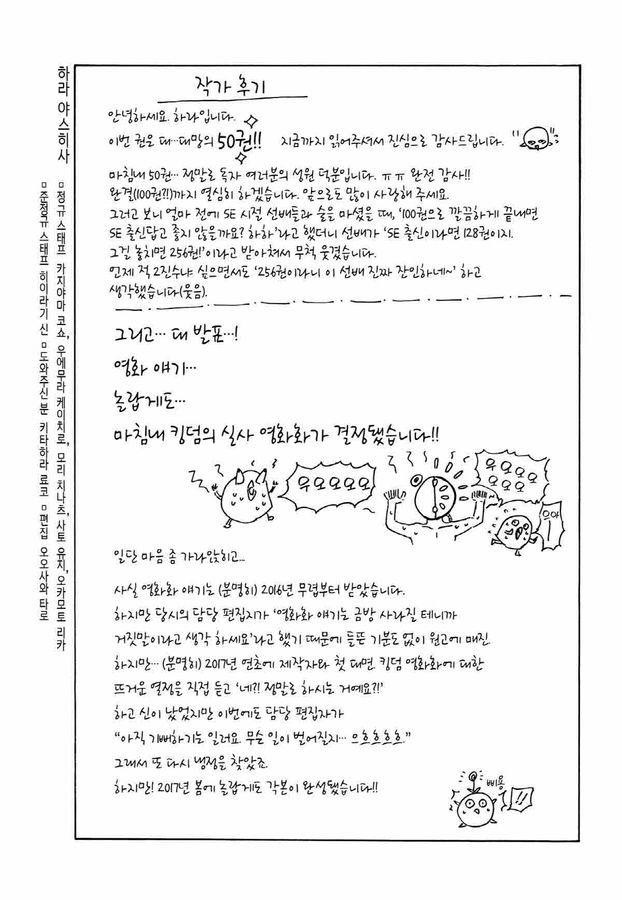 작가 후기
안녕하세요. 하라입니다.
이번 권은 대…대망의 50권!! 지금까지 읽어주셔서 진심으로 감사드립니다.
마침내 50권… 정말로 독자 여러분의 성원 덕분입니다. ㅠㅠ 완전 감사!!
완결(100권?!)까지 열심히 하겠습니다. 앞으로도 많이 사랑해 주세요.
그러고 보니 얼마 전에 SE 시절 선배들과 술을 마셨을 때, '100권으로 깔끔하게 끝내면
SE 출신답고 좋지 않을까요? 하하'라고 했더니 선배가 'SE 출신이라면 128권이지.
그걸 놓치면 256권!'이라고 받아쳐서 무척 웃겼습니다.
언제 적 2진수냐 싶으면서도 '256권이라니 이 선배 진짜 잔인하네~' 하고
생각했습니다(웃음).
그리고… 대 발표…!
영화 얘기…
놀랍게도…
마침내 킹덤의 실사 영화화가 결정됐습니다!!
우오오오오
우오오오
오오오
으아
일단 마음 좀 가라앉히고…
사실 영화화 얘기는 (분명히) 2016년 무렵부터 받았습니다.
하지만 당시의 담당 편집자가 '영화화 얘기는 금방 사라질 테니까
거짓말이라고 생각 하세요'라고 했기 때문에 들뜬 기분도 없이 원고에 매진.
하지만… (분명히) 2017년 연초에 제작자와 첫 대면. 킹덤 영화화에 대한
뜨거운 열정을 직접 듣고 '네?! 정말로 하시는 거예요?!'
하고 신이 났었지만 이번에도 담당 편집자가
"아직 기뻐하기는 일러요. 무슨 일이 벌어질지… 으흐흐흐흐."
그래서 또 다시 냉정을 찾았죠.
하지만! 2017년 봄에 놀랍게도 각본이 완성됐습니다!!
삐용
하라 야스히사
■정규 스태프 카지야마 코쇼, 우에무라 케이치로, 모리 치나츠, 사토 유지, 오카모토 리카
■준정규 스태프 히이라기 신 ■도와주신 분 키타하라 료코 ■편집 오오사와 타로